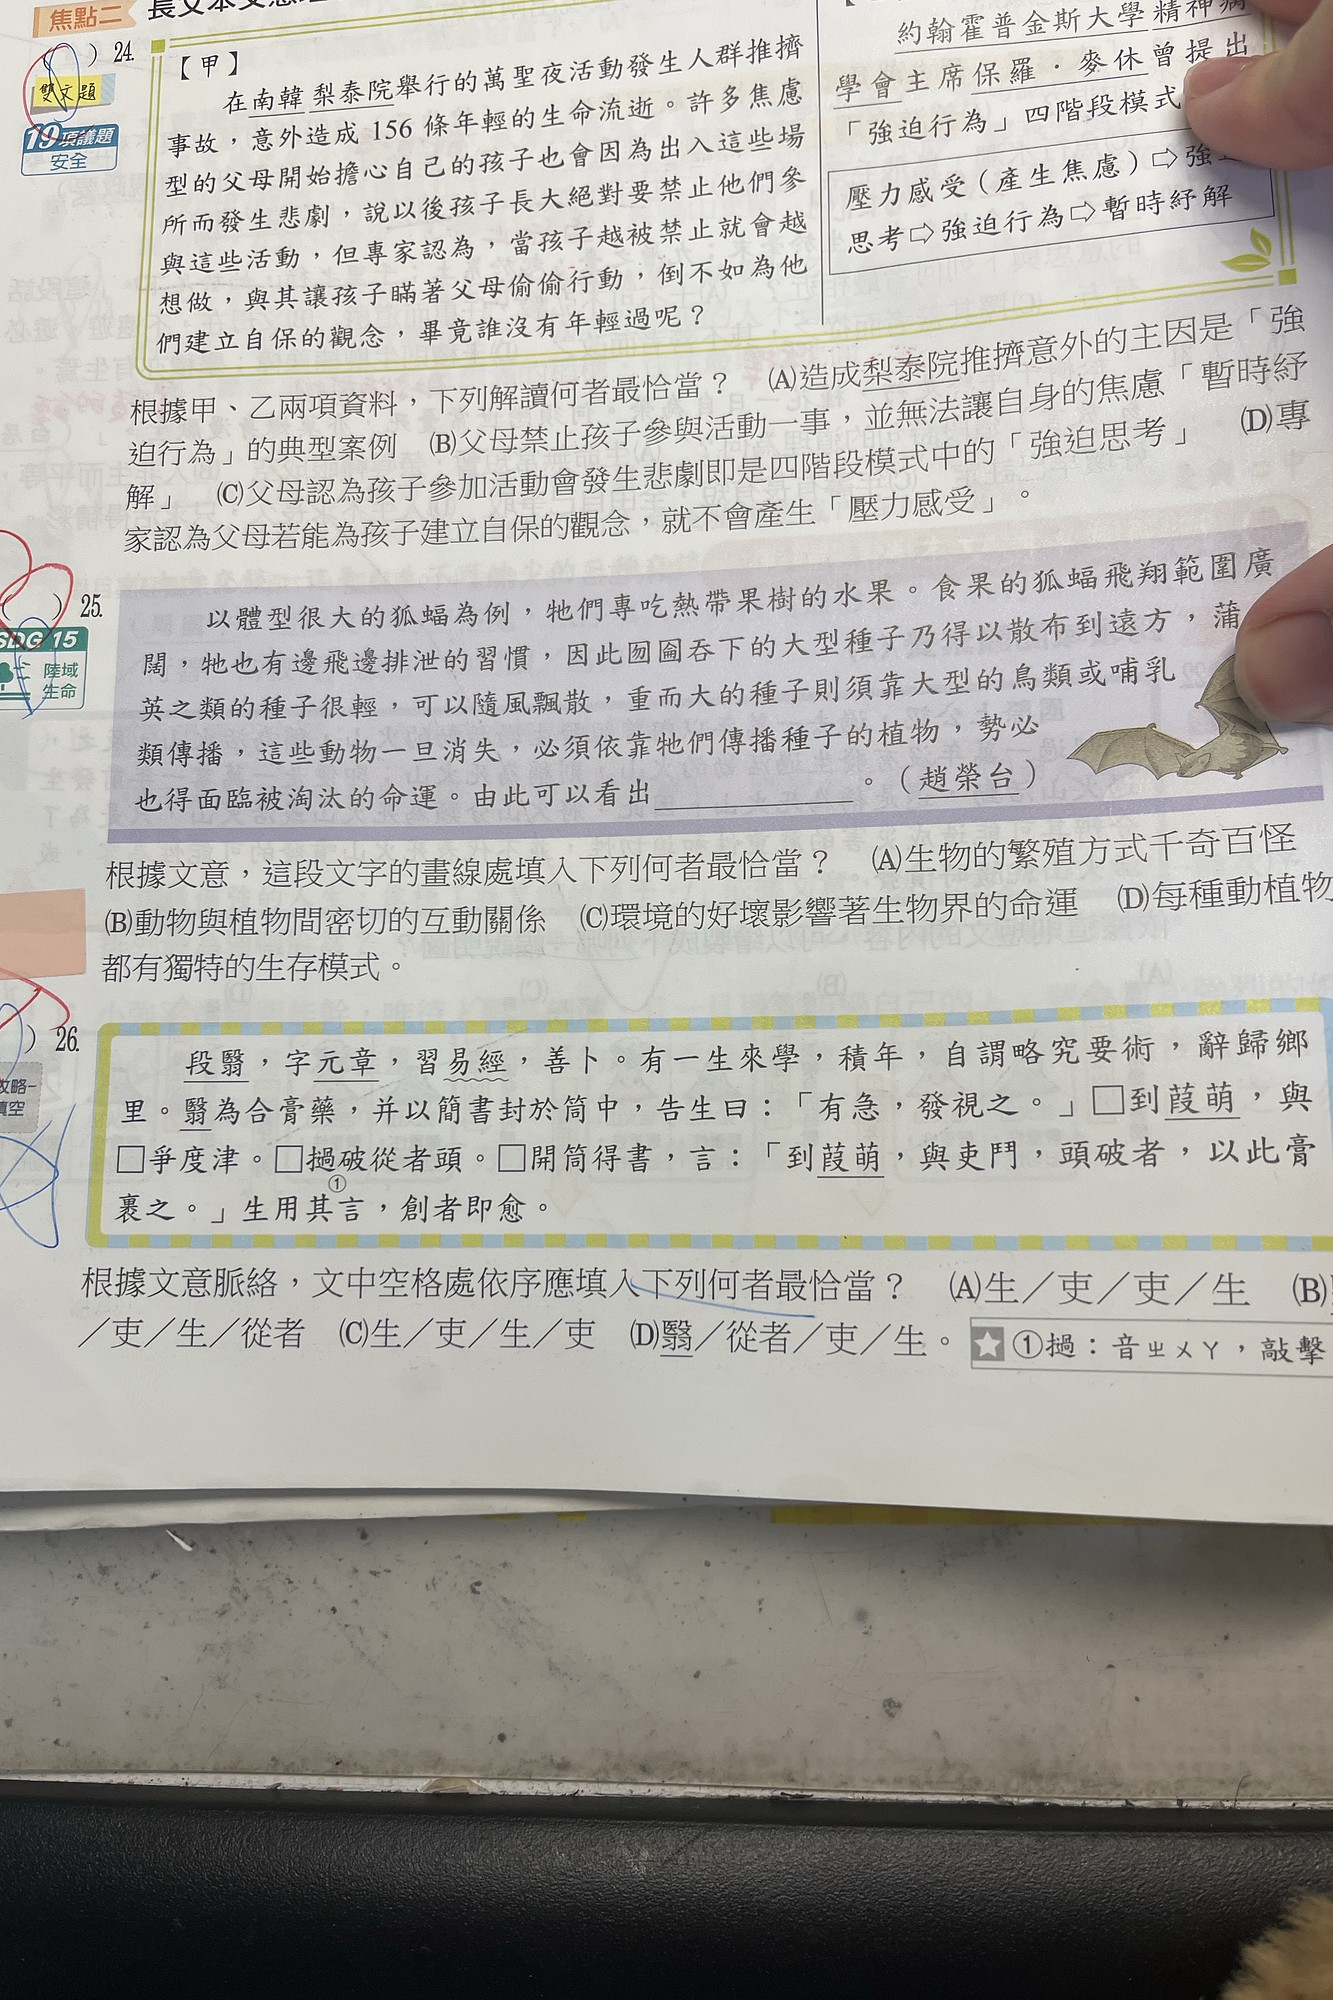 焦點二
( ) 24.
雙文題
19項議題
安全
【甲】
在南韓梨泰院舉行的萬聖夜活動發生人群推擠
事故，意外造成 156 條年輕的生命流逝。許多焦慮
型的父母開始擔心自己的孩子也會因為出入這些場
所而發生悲劇，說以後孩子長大絕對要禁止他們參
與這些活動，但專家認為，當孩子越被禁止就會越
想做，與其讓孩子瞞著父母偷偷行動，倒不如為他
們建立自保的觀念，畢竟誰沒有年輕過呢？
約翰霍普金斯大學精神病
學會主席保羅．麥休曾提出
「強迫行為」四階段模式
壓力感受（產生焦慮）⇨強
思考⇨強迫行為⇨暫時紓解
根據甲、乙兩項資料，下列解讀何者最恰當？　(A)造成梨泰院推擠意外的主因是「強
迫行為」的典型案例　(B)父母禁止孩子參與活動一事，並無法讓自身的焦慮「暫時紓
解」　(C)父母認為孩子參加活動會發生悲劇即是四階段模式中的「強迫思考」　(D)專
家認為父母若能為孩子建立自保的觀念，就不會產生「壓力感受」。
( ) 25.
SDG 15
陸域
生命
以體型很大的狐蝠為例，牠們專吃熱帶果樹的水果。食果的狐蝠飛翔範圍廣
闊，牠也有邊飛邊排泄的習慣，因此囫圇吞下的大型種子乃得以散布到遠方，蒲
英之類的種子很輕，可以隨風飄散，重而大的種子則須靠大型的鳥類或哺乳
類傳播，這些動物一旦消失，必須依靠牠們傳播種子的植物，勢必
也得面臨被淘汰的命運。由此可以看出＿＿＿＿＿＿。（趙榮台）
根據文意，這段文字的畫線處填入下列何者最恰當？　(A)生物的繁殖方式千奇百怪
(B)動物與植物間密切的互動關係　(C)環境的好壞影響著生物界的命運　(D)每種動植物
都有獨特的生存模式。
) 26.
攻略-
填空
段翳，字元章，習易經，善卜。有一生來學，積年，自謂略究要術，辭歸鄉
里。翳為合膏藥，并以簡書封於筒中，告生曰：「有急，發視之。」□到葭萌，與
□爭度津。□撾破從者頭。□開筒得書，言：「到葭萌，與吏鬥，頭破者，以此膏
①
裹之。」生用其言，創者即愈。
根據文意脈絡，文中空格處依序應填入下列何者最恰當？　(A)生／吏／吏／生　(B)
／吏／生／從者　(C)生／吏／生／吏　(D)翳／從者／吏／生。
①撾：音ㄓㄨㄚ，敲擊